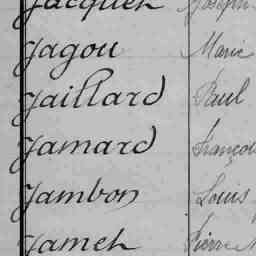 Jacquen Joseph
Jagou Marie
Jaillard Paul
Jamard Franço
Jambon Louis
Jameh Pierre